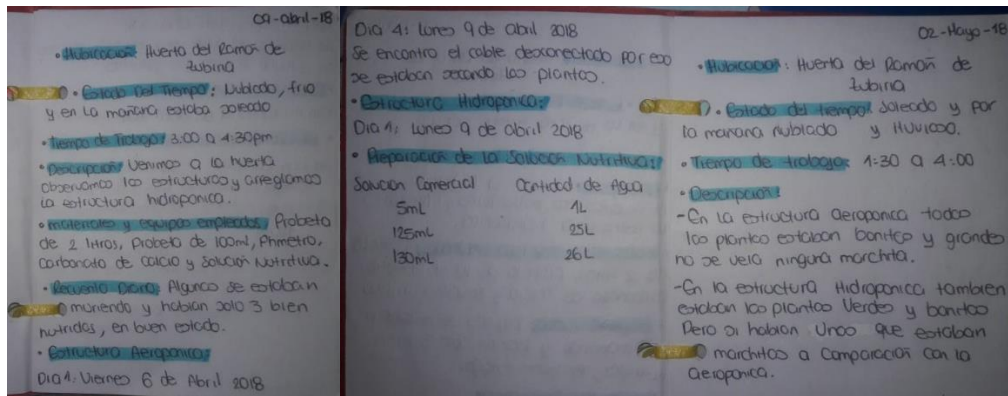 09-abril-18
• Hubicacion: Huerta del Ramon de
Zubiria
• Estado del Tiempo: Nublado, frio
y en la mañana estaba soleado
• Tiempo de Trabajo: 3:00 a 4:30pm
• Descripcion: Venimos a la huerta
observamos las estructuras y arreglamos
la estructura hidroponica.
• materiales y equipos empleados, Probeta
de 2 litros, probeta de 100ml, Phmetro,
carbonato de calcio y Solucion Nutritiva.
• Recuento Diario: Algunas se estaban
muriendo y habian solo 3 bien
nutridas, en buen estado.
• Estructura Aeroponica:
Dia 1: Viernes 6 de Abril 2018
Dia 4: Lunes 9 de abril 2018
Se encontro el cable desconectado por eso
se estaban secando las plantas.
• Estructura Hidroponica:
Dia 1: Lunes 9 de abril 2018
• Preparacion de la Solucion Nutritiva:
Solucion Comercial Cantidad de Agua
5mL 1L
125mL 25L
130mL 26L
02-Mayo-18
• Hubicacion: Huerta del Ramon de
Zubiria
• Estado del tiempo: Soleado y por
la mañana nublado y lluvioso.
• Tiempo de trabajo: 1:30 a 4:00
• Descripcion:
-En la estructura aeroponica todas
las plantas estaban bonitas y grandes
no se veia ninguna marchita.
-En la estructura Hidroponica tambien
estaban las plantas Verdes y bonitas
Pero si habian Unas que estaban
marchitas a Comparacion con la
aeroponica.